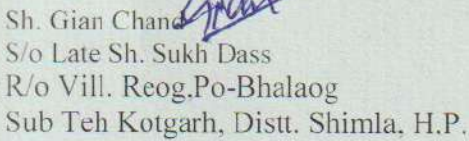 Sh. Gian Chand
S/o Late Sh. Sukh Dass
R/o Vill. Reog.Po-Bhalaog
Sub Teh Kotgarh, Distt. Shimla, H.P.